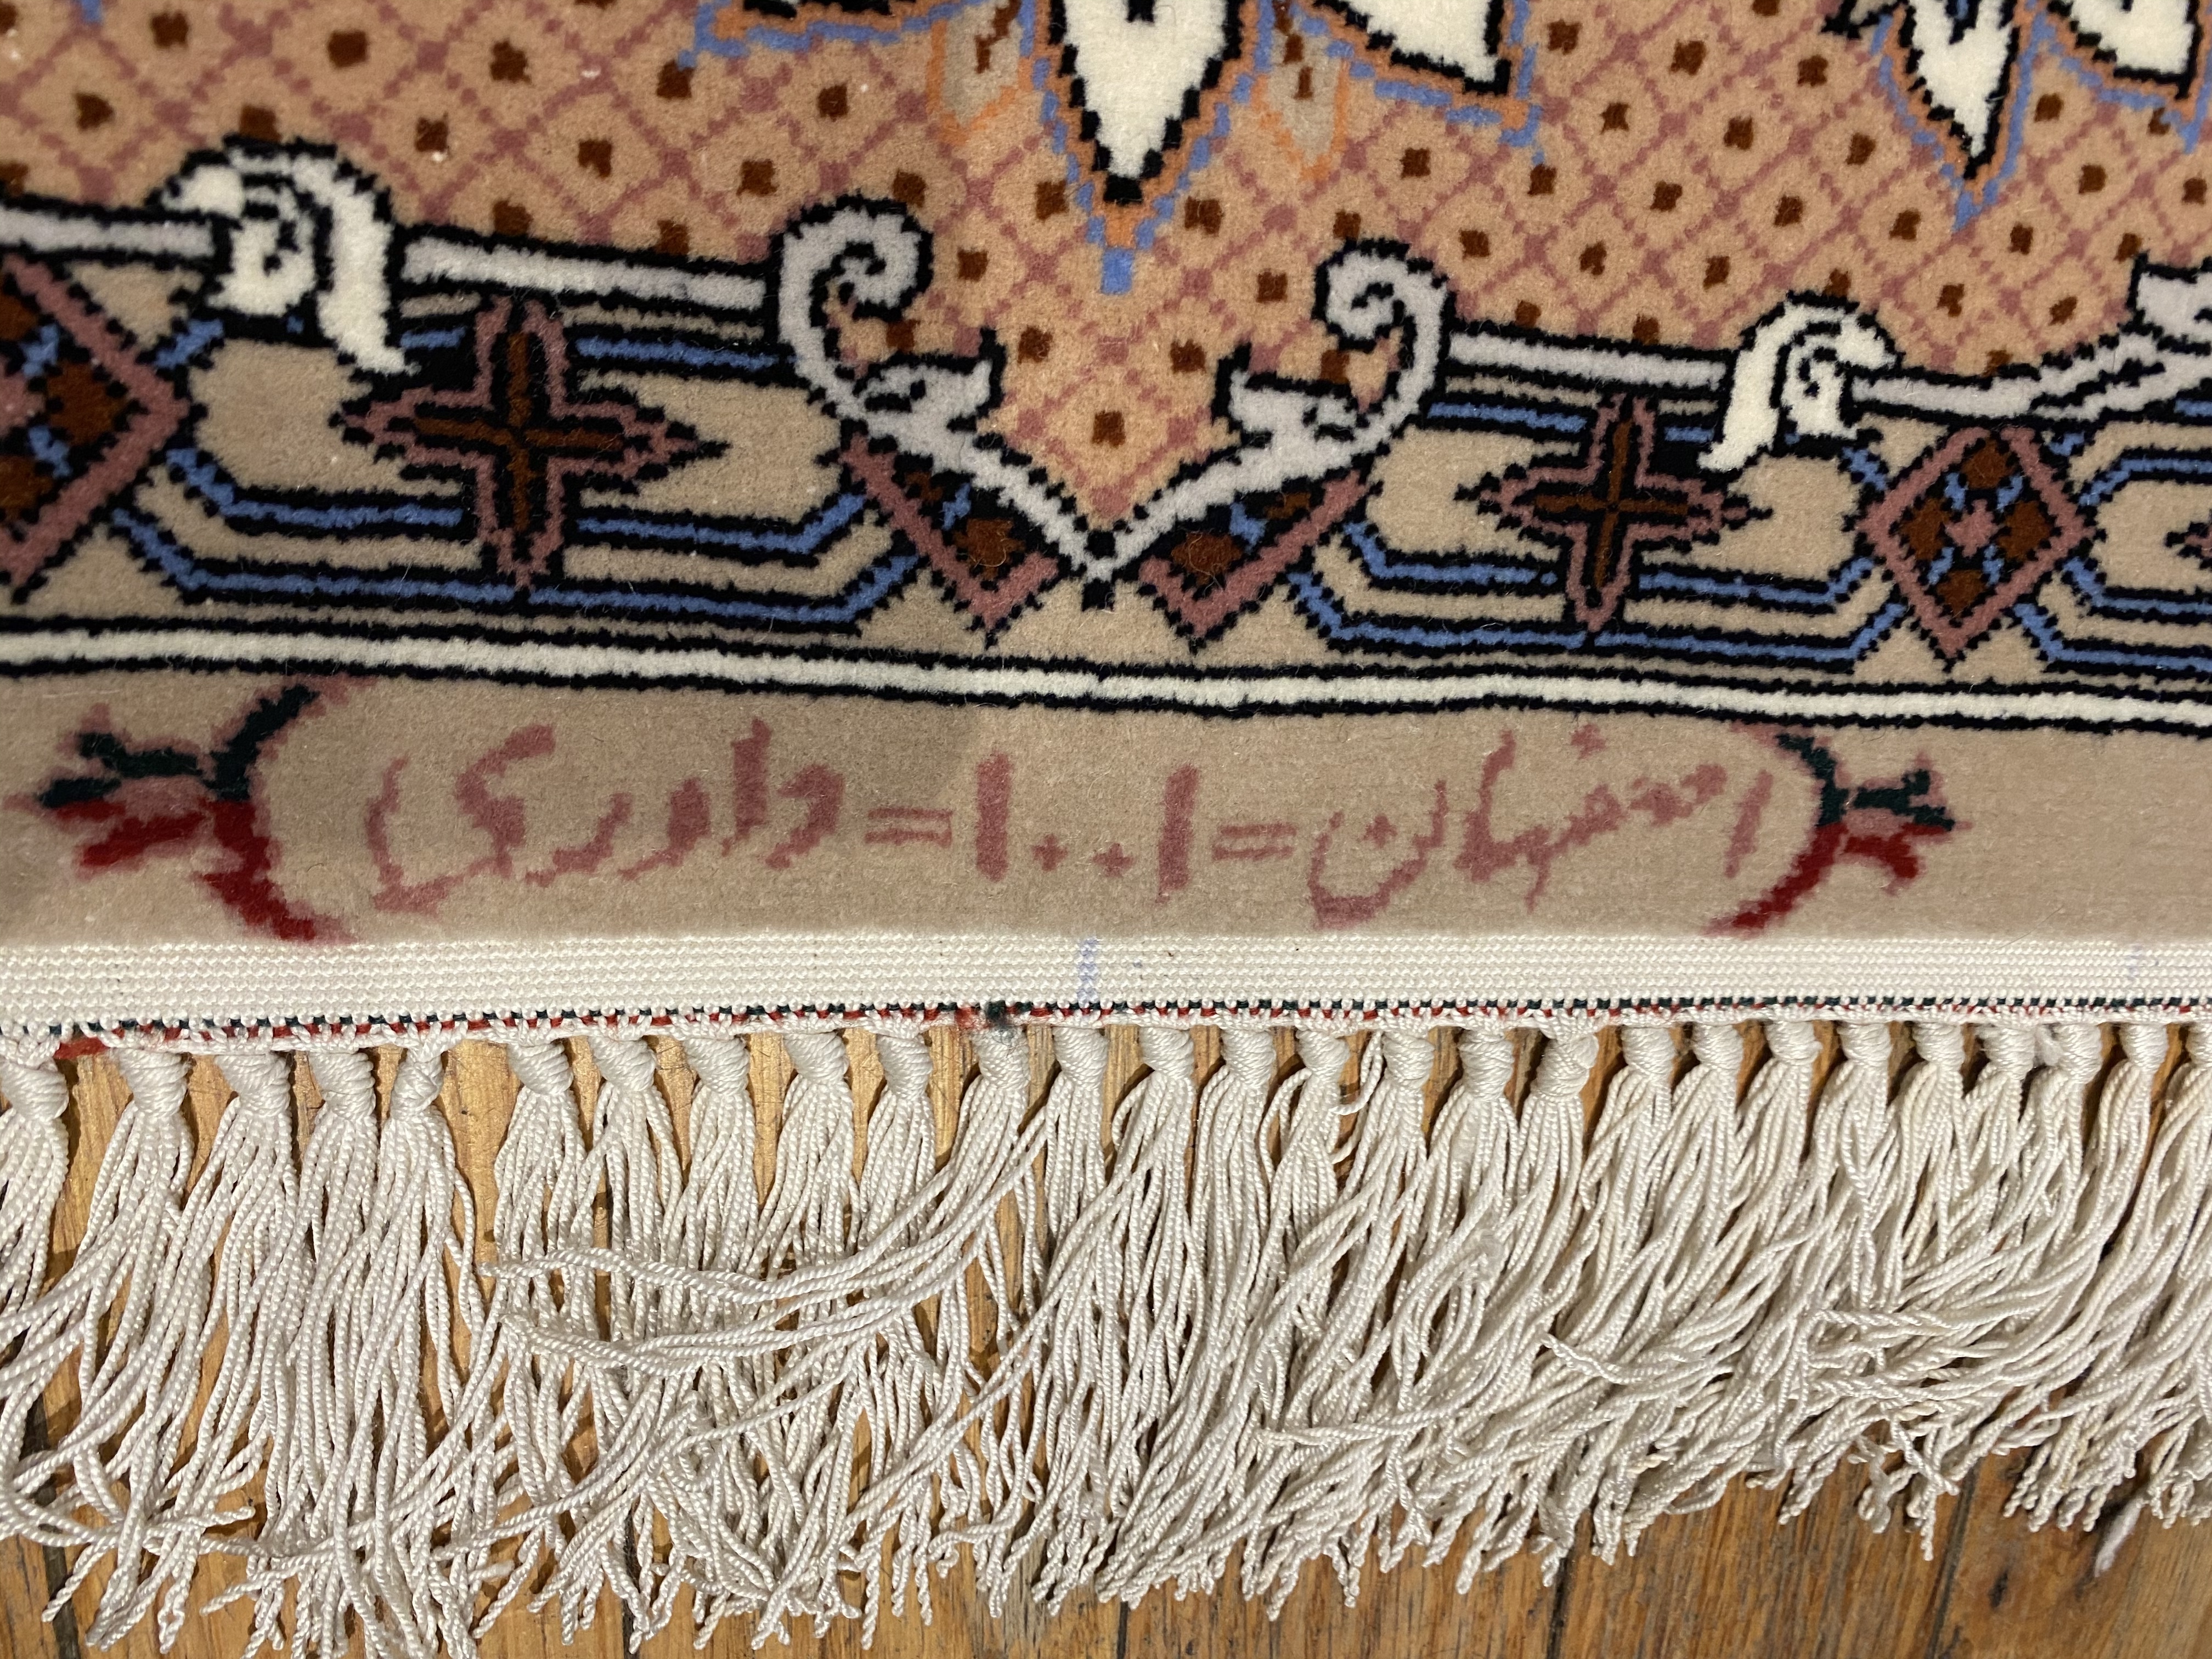 اصفهان=۱۰۰۱=داوری